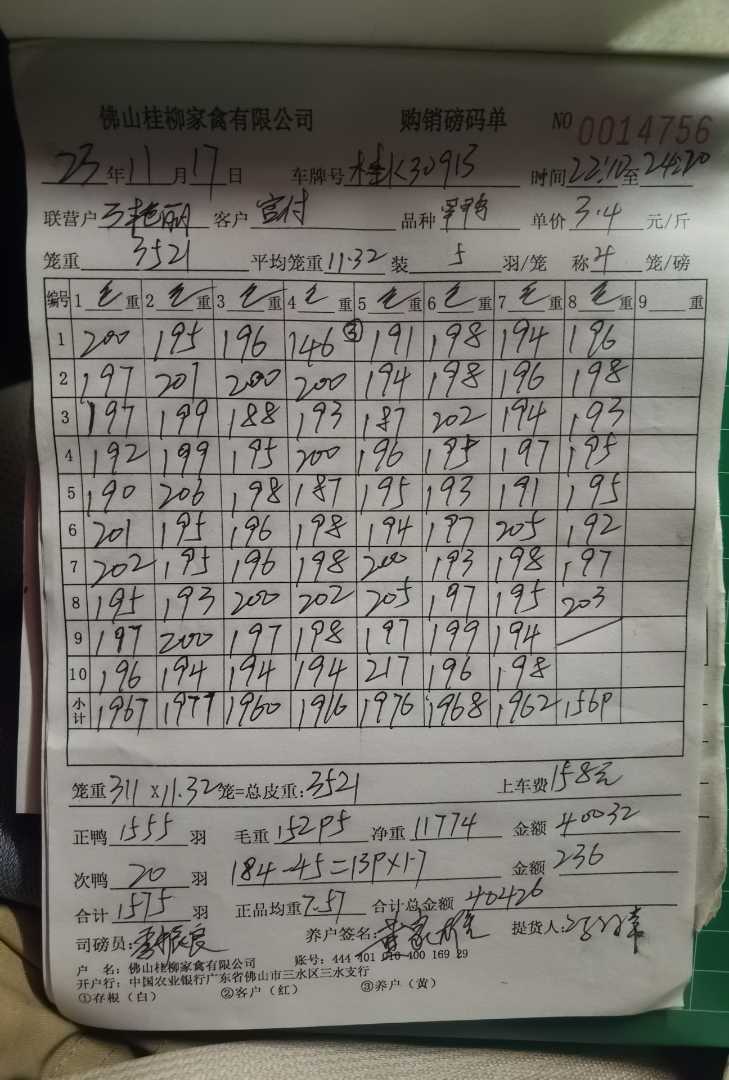 佛山桂柳家禽有限公司 购销磅码单 NO 0014756
23年11月17日 车牌号 桂K30913 时间 22:10至24:20
联营户 客户 品种 单价 3.4 元/斤
笼重 3521 平均笼重 11.32 装 5 羽/笼 称 4 笼/磅
编号 1 毛重 2 毛重 3 毛重 4 毛重 5 毛重 6 毛重 7 毛重 8 毛重 9 重
1 200 195 196 146③ 191 198 194 196
2 197 201 200 200 194 198 196 198
3 197 199 188 193 187 202 194 193
4 192 199 195 200 196 195 197 195
5 190 206 198 187 195 193 191 195
6 201 195 196 198 194 197 205 192
7 202 195 196 198 200 193 198 197
8 195 193 200 202 205 197 195 203
9 197 200 197 198 197 199 194
10 196 194 194 194 217 196 198
小计 1967 1977 1960 1916 1976 1968 1962 1569
笼重 311 X11.32 笼=总皮重: 3521 上车费 158元
正鸭 1555 羽 毛重 15295 净重 11774 金额 40032
次鸭 20 羽 184-45=139×1.7 金额 236
合计 1575 羽 正品均重 7.57 合计总金额 40426
司磅员: 养户签名: 提货人:
户 名: 佛山桂柳家禽有限公司 账号: 444 101 010 400 169 29
开户行: 中国农业银行广东省佛山市三水区三水支行
①存根(白) ②客户(红) ③养户(黄)